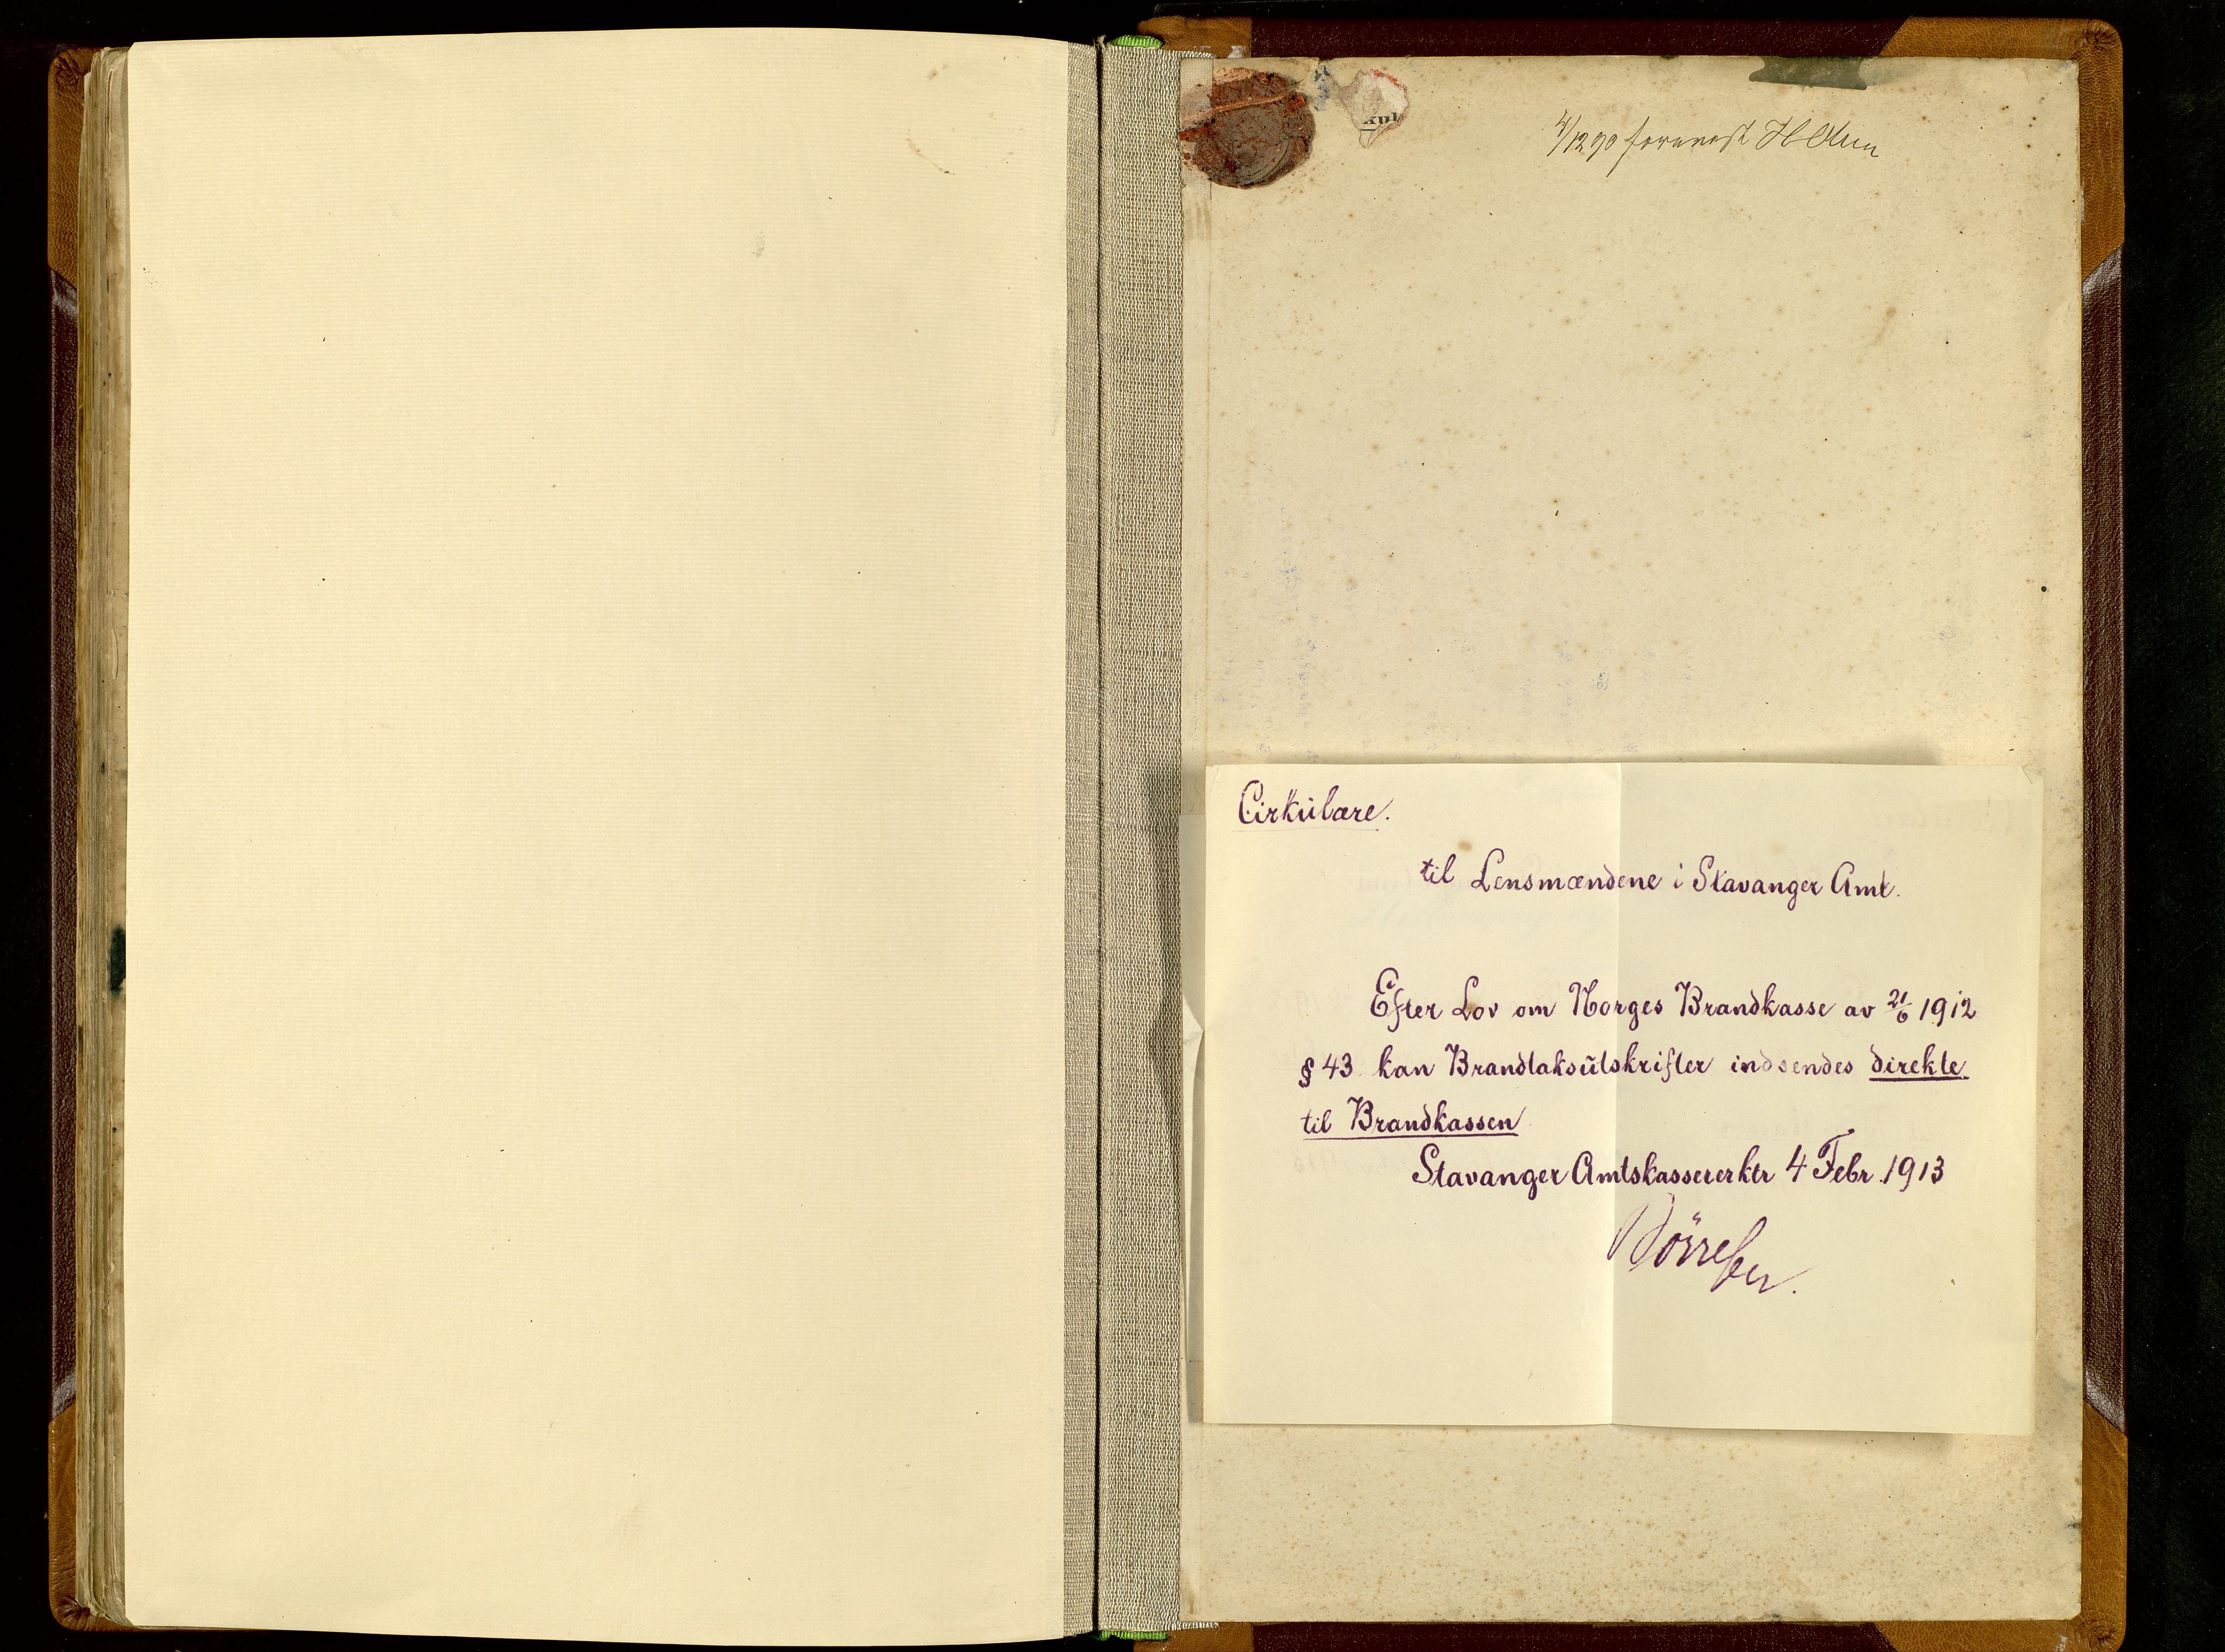 4/12 90 forevist H Olsen
Cirkülære.
til Lensmændene i Stavanger Amt.
Efter Lov om Norges Brandkasse av 21/6 1912
§ 43 kan Brandtaksütskrifter indsendes direkte
til Brandkassen
Stavanger Amtskassererktr 4 Febr. 1913
Börresen.